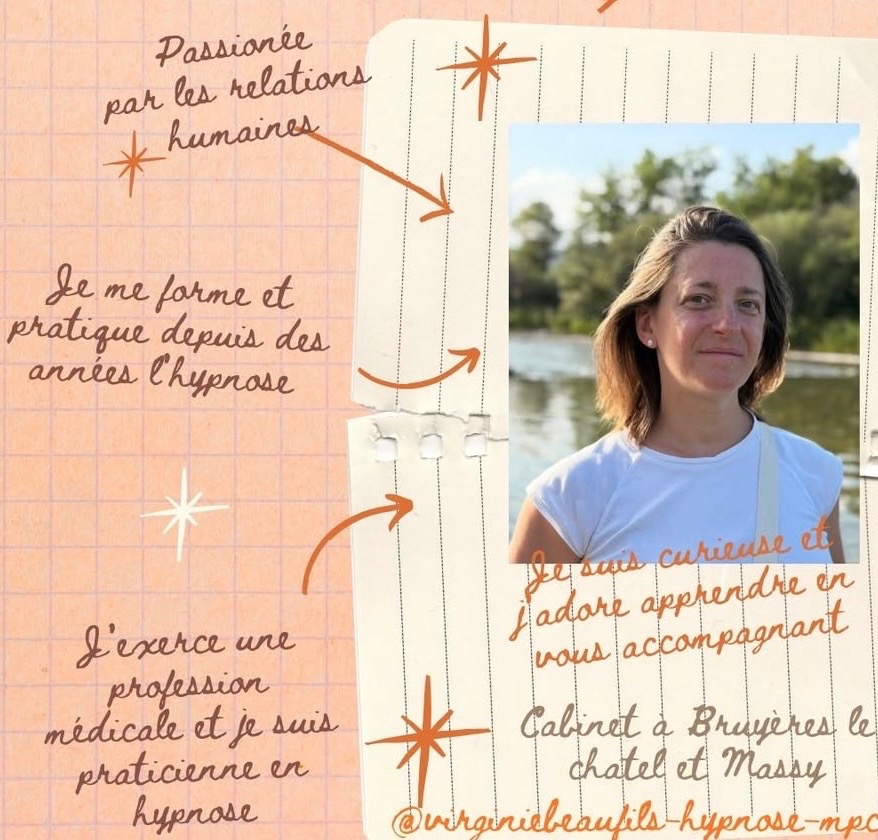 Passionée
par les relations
humaines
Je me forme et
pratique depuis des
années l'hypnose
J'exerce une
profession
médicale et je suis
praticienne en
hypnose
Je suis curieuse et
j'adore apprendre en
vous accompagnant
Cabinet à Bruyères le
chatel et Massy
@virginiebeaufils-hypnose-mpc